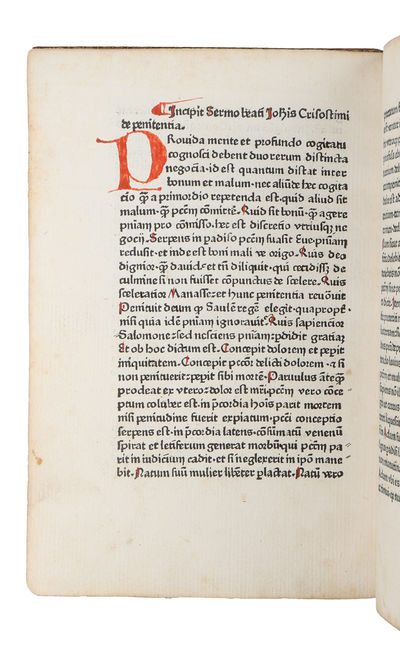 Incipit Sermo beati Joh̄is Crisostimi
de penitentia.
PRouida mente et profundo cogitatu
cognosci debent duo rerum distincta
negocia·id est quantum distat inter
bonum et malum·nec aliūde hec cogita
cio q̄ a primordio repetenda est·quid aliud sit
malum·q̄ pctm̄ cōmitte᷑·Quid sit bonū·q̄ agere
pn̄iam pro cōmisso·hec est discretio vtriusq; ne
gocij·Serpens in padiso pctm̄ suasit Eue·pn̄iam
reclusit·et inde est boni mali ve origo·Quis deo
dignior·q̄ dauid·et tn̄ diliquit·qui cecidiss; de
culmine si non fuisset cōpunctus de scelere·Quis
sceleratior Manasse·et hunc penitentia reuouit
Penituit deum q̄ Saulē regē elegit·quapropt᷑·
nisi quia idem pn̄iam ignorauit·Quis sapiencior
Salomone·sed nesciens pn̄iam·pdidit gratiā·
Et ob hoc dictum est·Concepit dolorem et pepit
iniquitatem·Concepit pctm̄·delicti dolorem·⁊ si
non penituerit·pepit sibi mortē·Paruulus anteq̄
prodeat ex vtero·dolor est mr̄i·pctm̄ vero cōce-
ptum coluber est·in p̄cordia ho͞is parit mortem
nisi penitudine fuerit expiatum·pcti conceptio
serpens est·in p̄cordia latens·cōsūmatū venenū
spirat et letiferum generat morbū·qui pctm̄ pa-
rit in iudicium cadit·et si neglexerit in ip̄o mane-
bit·Natum suū mulier libēter plactat·Natū vero